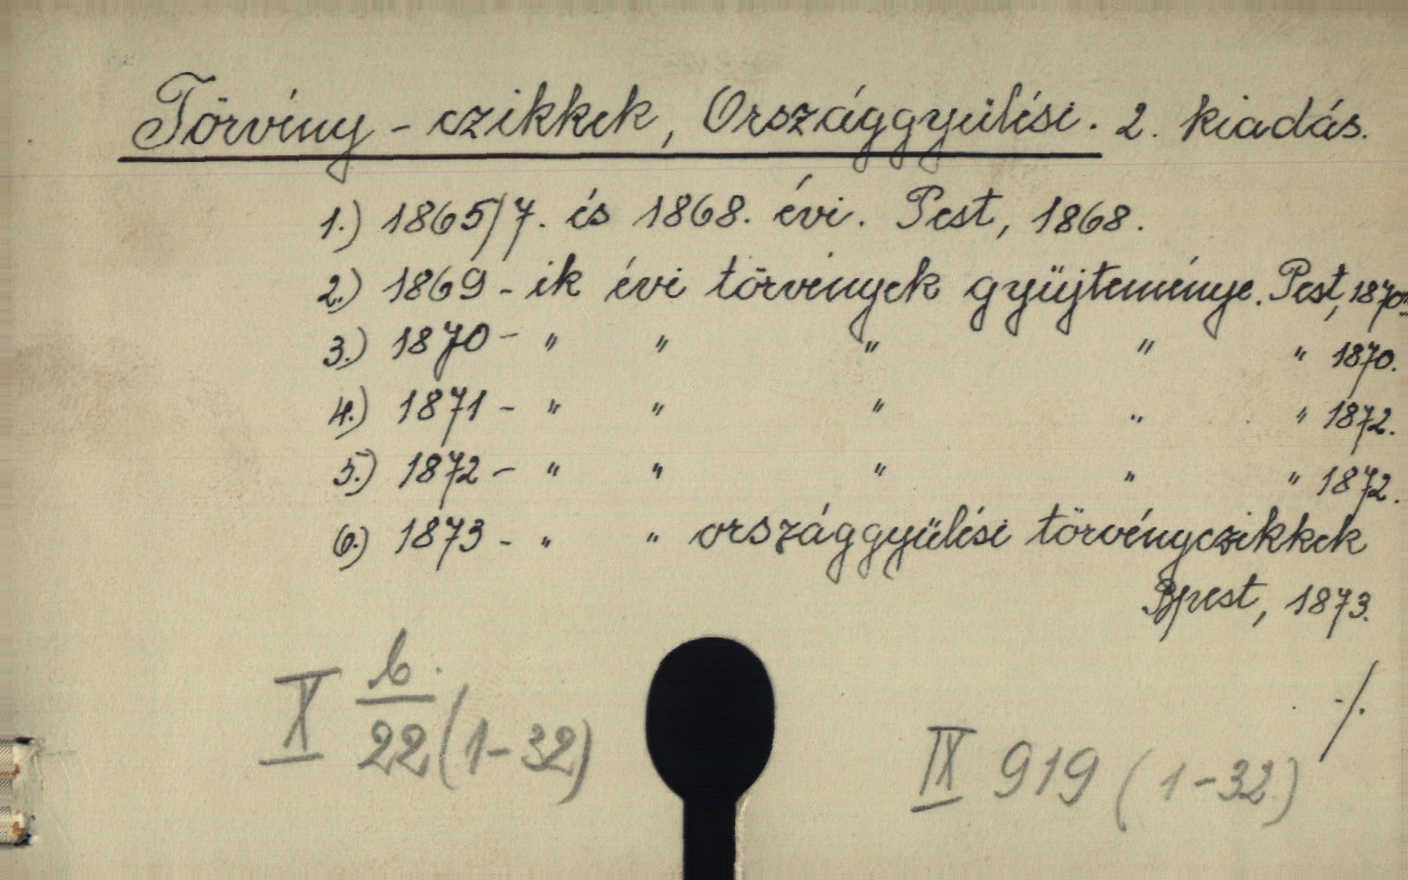 Törvény-czikkek, Országgyülési. 2. kiadás.
1.) 1865/7. és 1868. évi. Pest, 1868.
2.) 1869-ik évi törvények gyüjteménye. Pest, 1870.
3.) 1870- " " " " " 1870.
4.) 1871- " " " " " 1872.
5.) 1872- " " " " " 1872.
6.) 1873- " " országgyülési törvényczikkek
Bpest, 1873.
./.
X b./22 (1-32)
IX 919 (1-32)